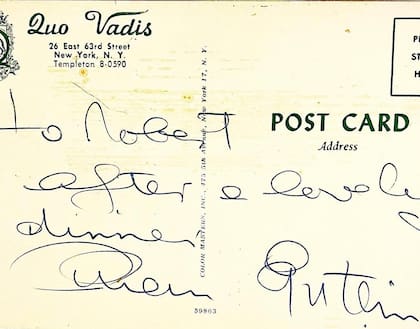 Quo Vadis
26 East 63rd Street
New York, N. Y.
Templeton 8-0590
POST CARD
Address
COLOR MASTERS, INC., 475 5th Avenue, New York 17, N. Y.
59863
to Robert
after a lovely
dinner